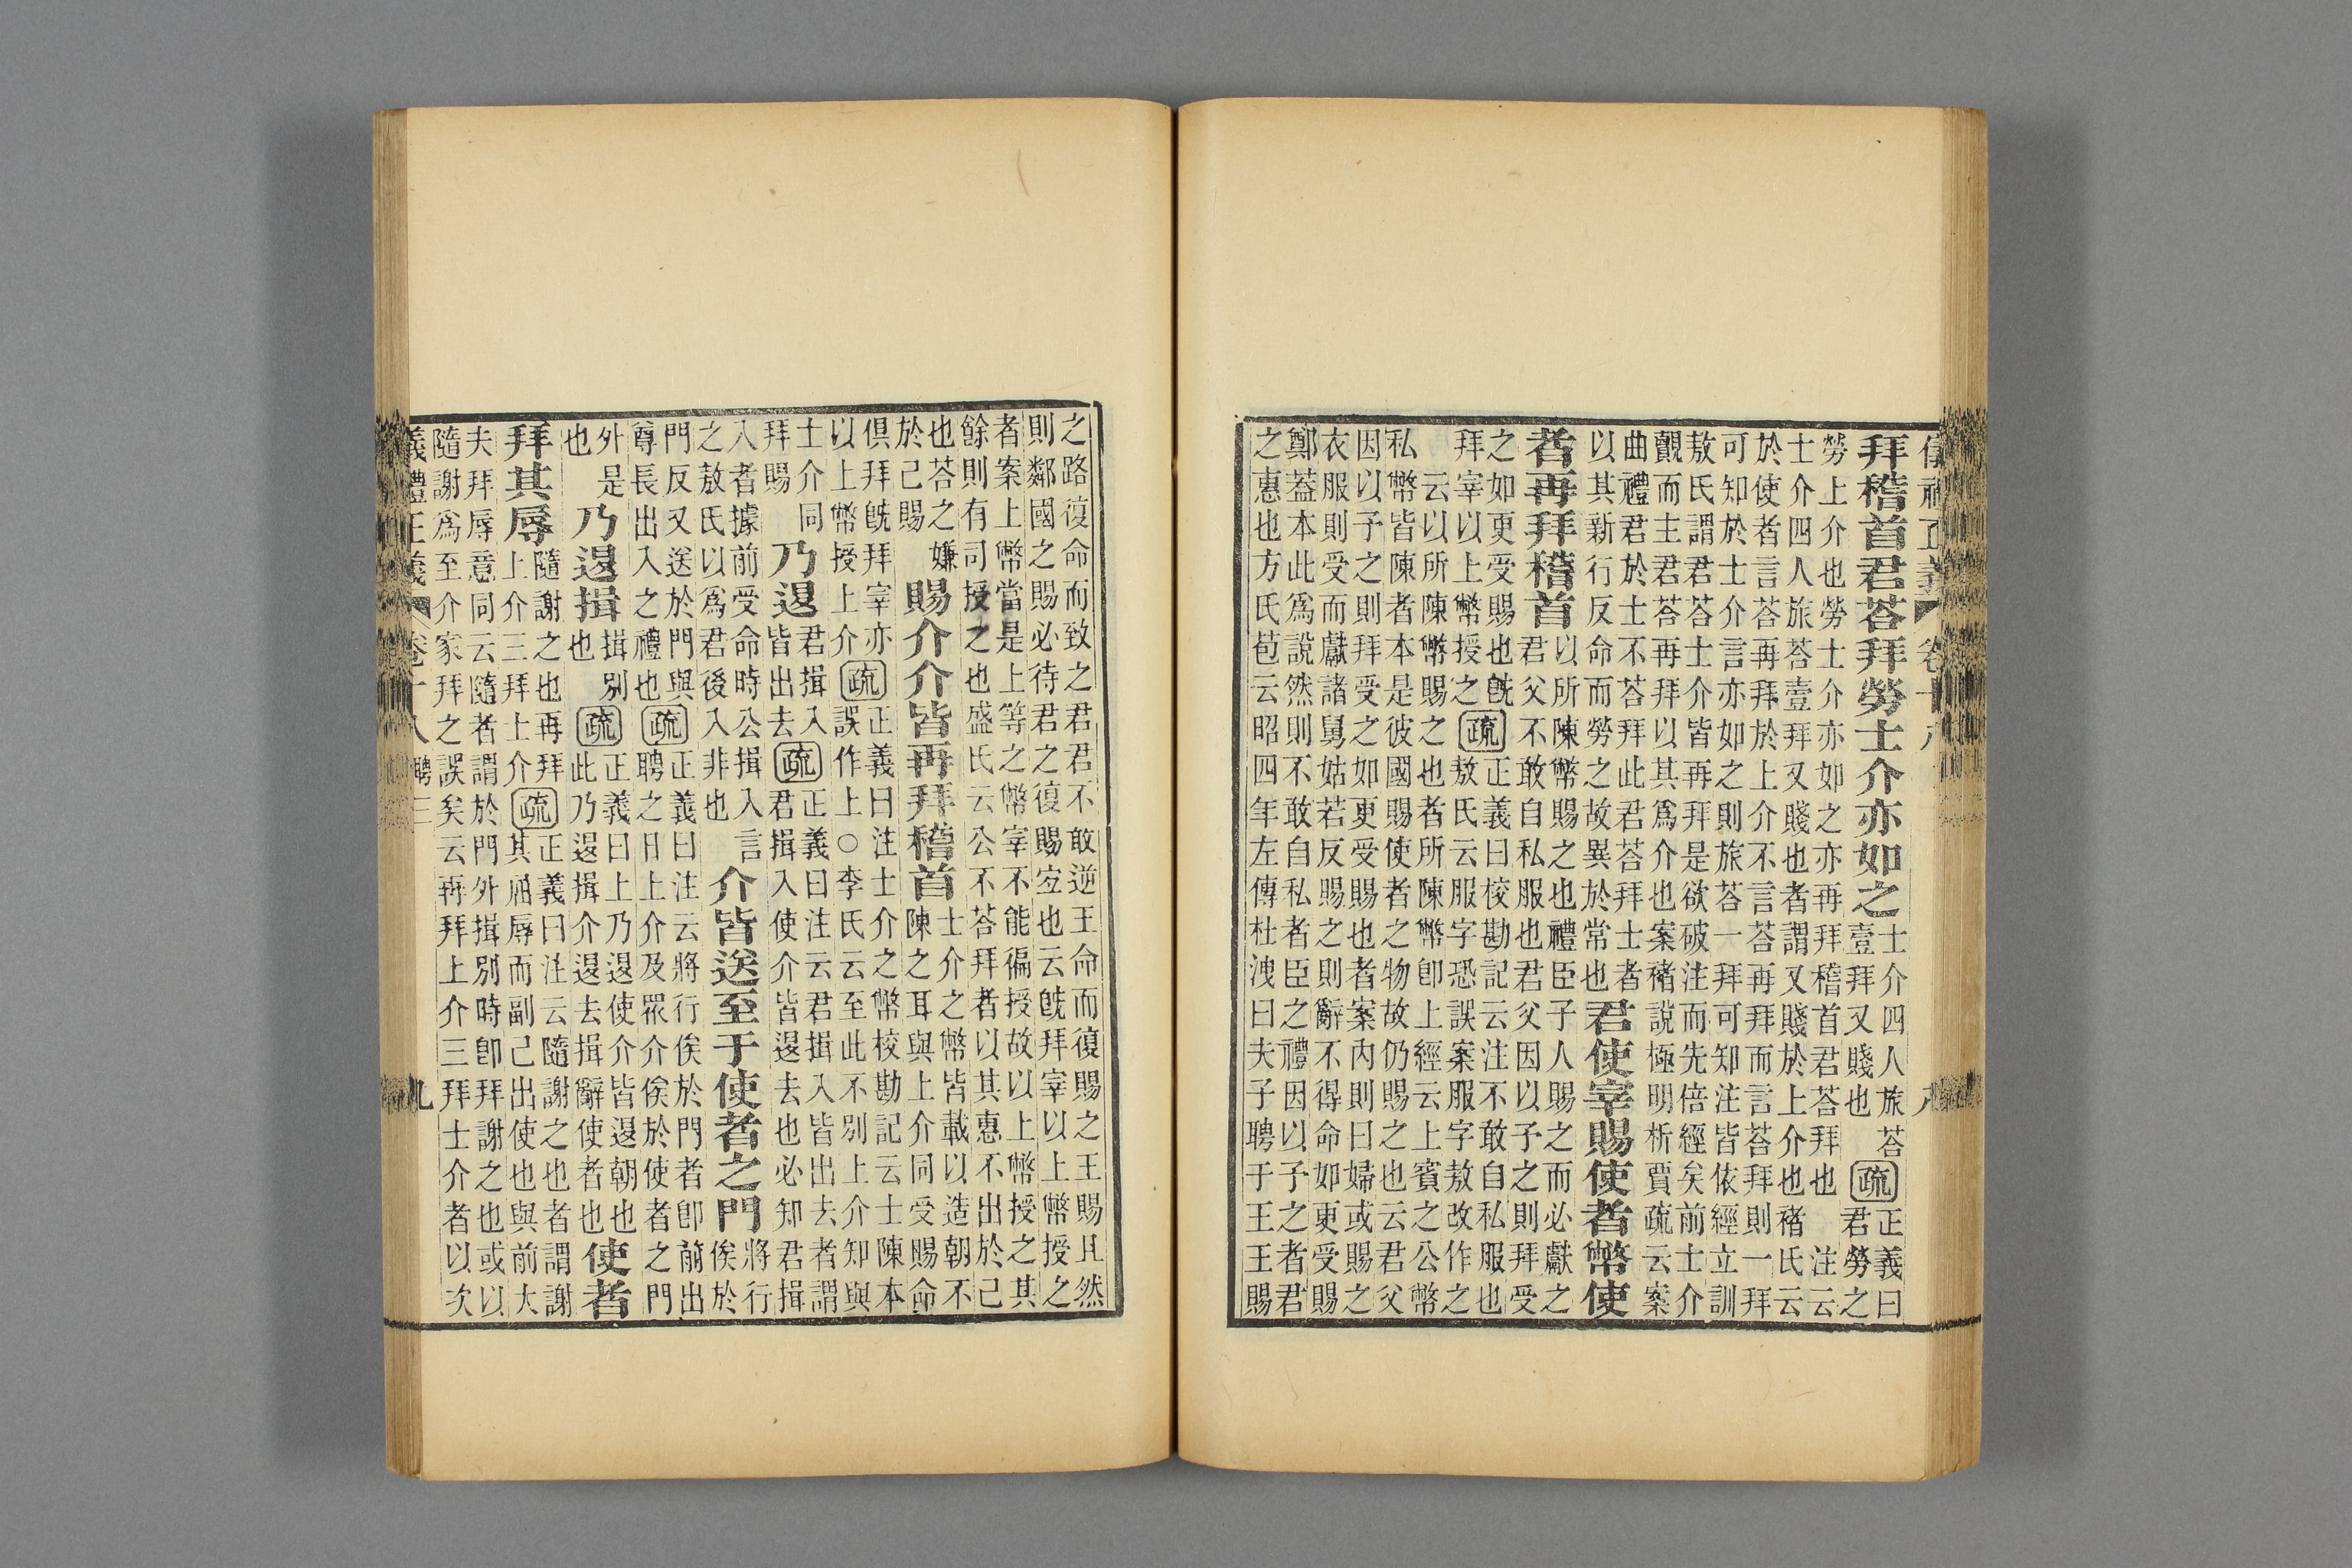 拜稽首君荅拜勞士介亦如之
士介四人旅荅
壹拜又賤也
疏
正義曰
君勞之
勞上介也勞士介亦如之亦再拜稽首君荅拜也 注云
士介四人旅荅壹拜又賤也者謂又賤於上介也褚氏云
於使者言荅再拜於上介不言荅再拜而言荅拜則一拜
可知於士介言亦如之則旅荅一拜可知注皆依經立訓
敖氏謂君荅士介皆再拜是欲破注而先倍經矣前士介
覿而主君荅再拜以其爲介也案褚說極明析賈疏云案
曲禮君於士不荅拜此君荅拜士者
以其新行反命而勞之故異於常也
君使宰賜使者幣使
者再拜稽首
以所陳幣賜之也禮臣子人賜之而必獻之
君父不敢自私服也君父因以予之則拜受
之如更受賜也旣
拜宰以上幣授之
疏
正義曰校勘記云注不敢自私服也
敖氏云服字恐誤案服字敖改作之
云以所陳幣賜之也者所陳幣卽上經云上賓之公幣
私幣皆陳者本是彼國賜使者之物故仍賜之也云君父
因以予之則拜受之如更受賜也者案內則曰婦或賜之
衣服則受而獻諸舅姑若反賜之則辭不得命如更受賜
鄭蓋本此爲說然則不敢自私者臣之禮因以予之者君
之惠也方氏苞云昭四年左傳杜洩曰夫子聘于王王賜
之路復命而致之君君不敢逆王命而復賜之王賜且然
則鄰國之賜必待君之復賜宜也云旣拜宰以上幣授之
者案上幣當是上等之幣宰不能徧授故以上幣授之其
餘則有司授之也盛氏云公不荅拜者以其惠不出於己
也荅之嫌
於己賜
賜介介皆再拜稽首
士介之幣皆載以造朝不
陳之耳與上介同受賜命
俱拜旣拜宰亦
以上幣授上介
疏
正義曰注士介之幣校勘記云士陳本
誤作上○李氏云至此不別上介知與
士介同
拜賜
乃退
君揖入
皆出去
疏
正義曰注云君揖入皆出去者謂
君揖入使介皆退去也必知君揖
入者據前受命時公揖入言
之敖氏以爲君後入非也
介皆送至于使者之門
將行
俟於
門反又送於門與
尊長出入之禮也
疏
正義曰注云將行俟於門者卽前出
聘之日上介及眾介俟於使者之門
外是
也
乃退揖
揖別
也
疏
正義曰上乃退使介皆退朝也
此乃退揖介退去揖辭使者也
使者
拜其辱
隨謝之也再拜
上介三拜上介
疏
正義曰注云隨謝之也者謂謝
其屈辱而副己出使也與前大
夫拜辱意同云隨者謂於門外揖別時卽拜謝之也或以
隨謝爲至介家拜之誤矣云再拜上介三拜士介者以次
九